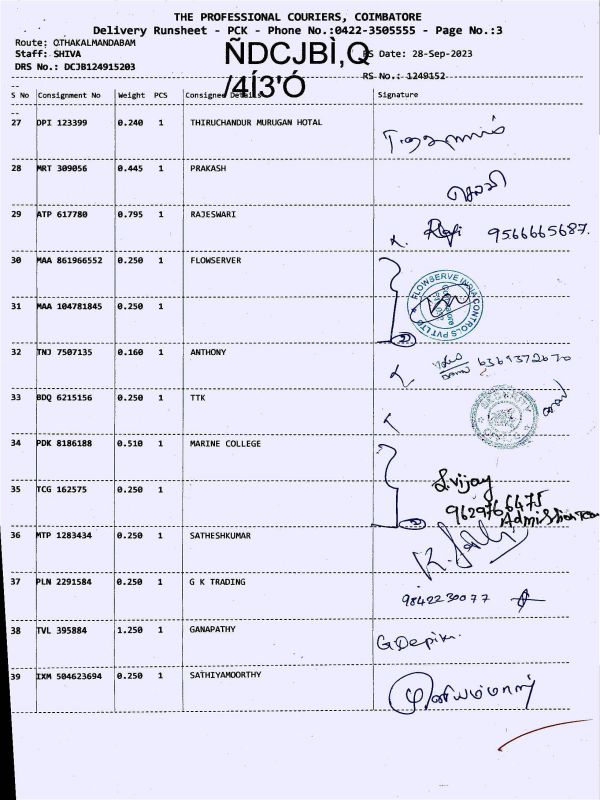 THE PROFESSIONAL COURIERS, COIMBATORE
Delivery Runsheet - PCK - Phone No.:0422-3505555 - Page No.:3
Route: OTHAKALMANDABAM
Staff: SHIVA ÑDCJBÌ,Q RS Date: 28-Sep-2023
DRS No.: DCJB124915203 /4Í3'Ó RS No.: 1249152
S No Consignment No Weight PCS Consignee Details Signature
27 DPI 123399 0.240 1 THIRUCHANDUR MURUGAN HOTAL
28 MRT 309056 0.445 1 PRAKASH
29 ATP 617780 0.795 1 RAJESWARI 9566665687.
30 MAA 861966552 0.250 1 FLOWSERVER
FLOWSERVE INDIA CONTROLS PVT LTD
31 MAA 104781845 0.250 1
32 TNJ 7507135 0.160 1 ANTHONY 6369372670
33 BDQ 6215156 0.250 1 TTK
SECURITY
34 PDK 8186188 0.510 1 MARINE COLLEGE
S.vijay
35 TCG 162575 0.250 1 9629766475
Admission Team
36 MTP 1283434 0.250 1 SATHESHKUMAR
37 PLN 2291584 0.250 1 G K TRADING 9842230077
38 TVL 395884 1.250 1 GANAPATHY G.Depika.
39 IXM 504623694 0.250 1 SATHIYAMOORTHY